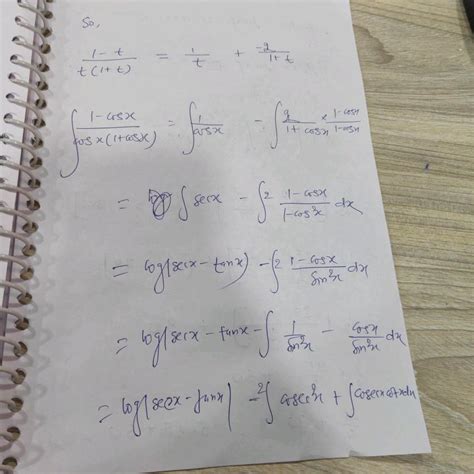 So,
(1-t)/(t(1+t)) = 1/t + -2/(1+t)
∫ (1-cosx)/(cosx(1+cosx)) = ∫ 1/cosx - ∫ 2/(1+cosx) × (1-cosx)/(1-cosx)
= ∫ secx - ∫ 2 (1-cosx)/(1-cos²x) dx
= log|secx - tanx| - ∫ 2 (1-cosx)/sin²x dx
= log|secx - tanx - ∫ 1/sin²x - cosx/sin²x dx
= log|secx - tanx| - 2∫ cosec²x + ∫ cosecx cotx dx